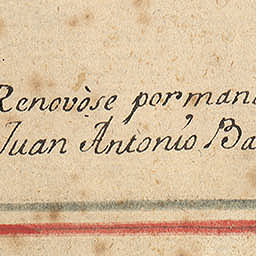 Renovòse por mand
Juan Antonio Ba